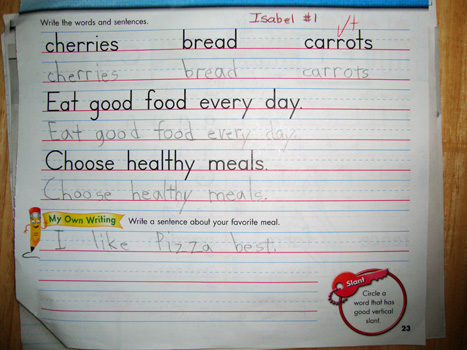 Write the words and sentences.
Isabel #1
√+
cherries bread carrots
cherries bread carrots
Eat good food every day.
Eat good food every day.
Choose healthy meals.
Choose healthy meals.
My Own Writing Write a sentence about your favorite meal.
I like Pizza best.
Slant
Circle a
word that has
good vertical
slant.
23